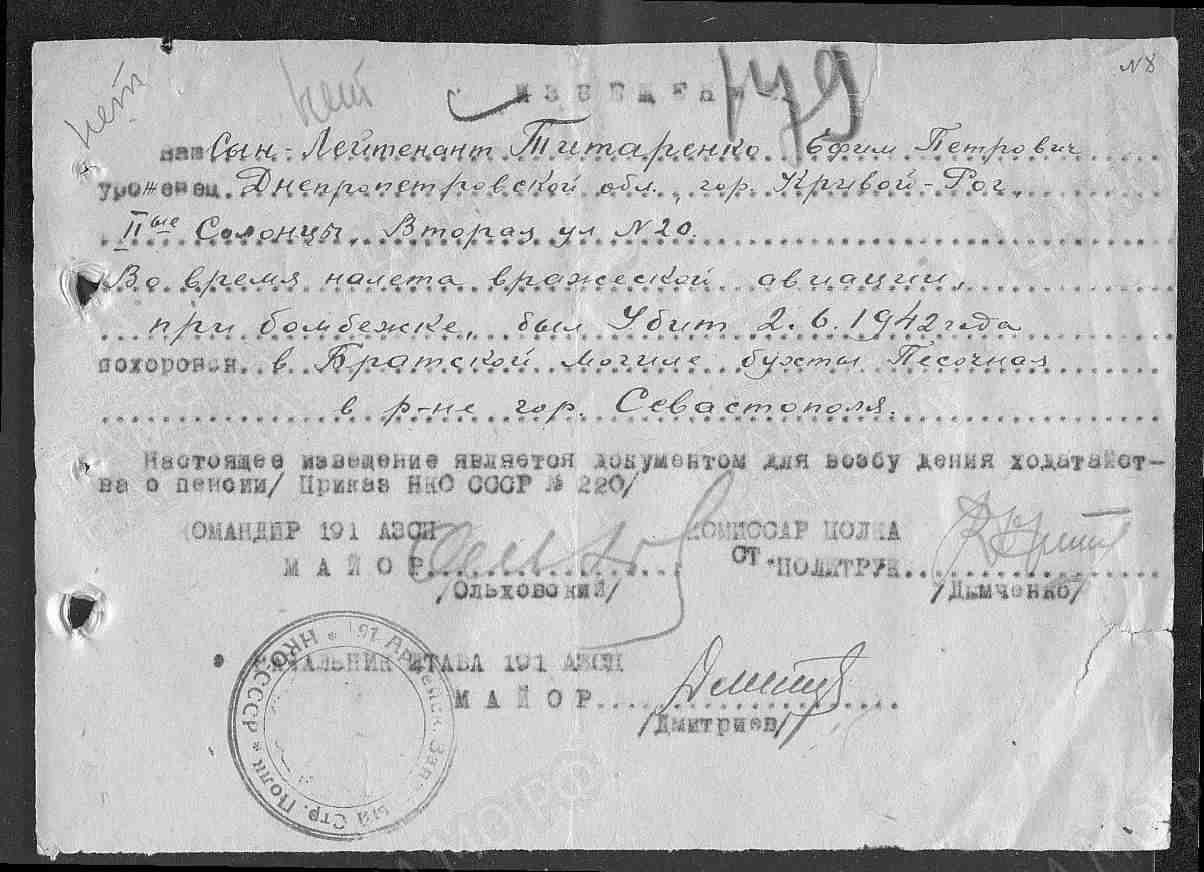 N8
нет
нет
ИЗВЕЩЕН
ваш Сын - Лейтенант Титаренко Ефим Петрович
уроженец Днепропетровской обл., гор. Кривой-Рог,
IIые Солонцы, Вторая ул N 20.
Во время налета вражеской авиации,
при бомбежке, был Убит 2.6.1942 года
похоронен в Братской могиле бухты Песочная
в р-не гор. Севастополя.
Настоящее извещение является документом для возбу дения ходатайст-
ва о пенсии/ Приказ НКО СССР № 220/
КОМАНДИР 191 АЗСП КОМИССАР ПОЛКА
МАЙОР СТ. ПОЛИТРУК
/Ольховский/ /Дымченко/
НАЧАЛЬНИК ШТАБА 191 АЗСП
МАЙОР
/Дмитриев/
НКО-СССР * 191 Армейск. Зап ый Стр. Полк *